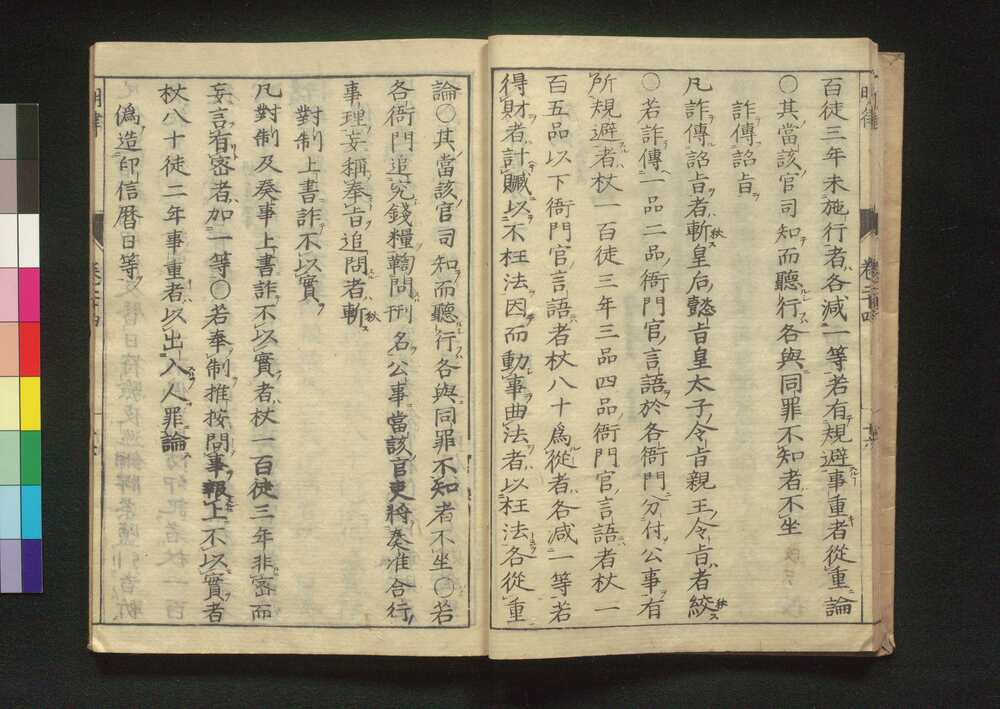 百徒三年未施行者各減一等若有規避事重者從重論
〇其當該官司知而聽行各與同罪不知者不坐
詐傳詔旨
凡詐傳詔旨者斬皇后懿旨皇太子令旨親王令旨者絞
〇若詐傳一品二品衙門官言語於各衙門分付公事有
所規避者杖一百徒三年三品四品衙門官言語者杖一
百五品以下衙門官言語者杖八十爲從者各減一等若
得財者計贓以不枉法因而動事曲法者以枉法各從重
論〇其當該官司知而聽行各與同罪不知者不坐〇若
各衙門追究錢糧鞫問刑名公事當該官吏將奏准合行
事理妄稱奉旨追問者斬
對制上書詐不以實
凡對制及奏事上書詐不以實者杖一百徒三年非密而
妄言有密者加一等〇若奉制推按問事報上不以實者
杖八十徒二年事重者以出入人罪論
僞造印信曆日等